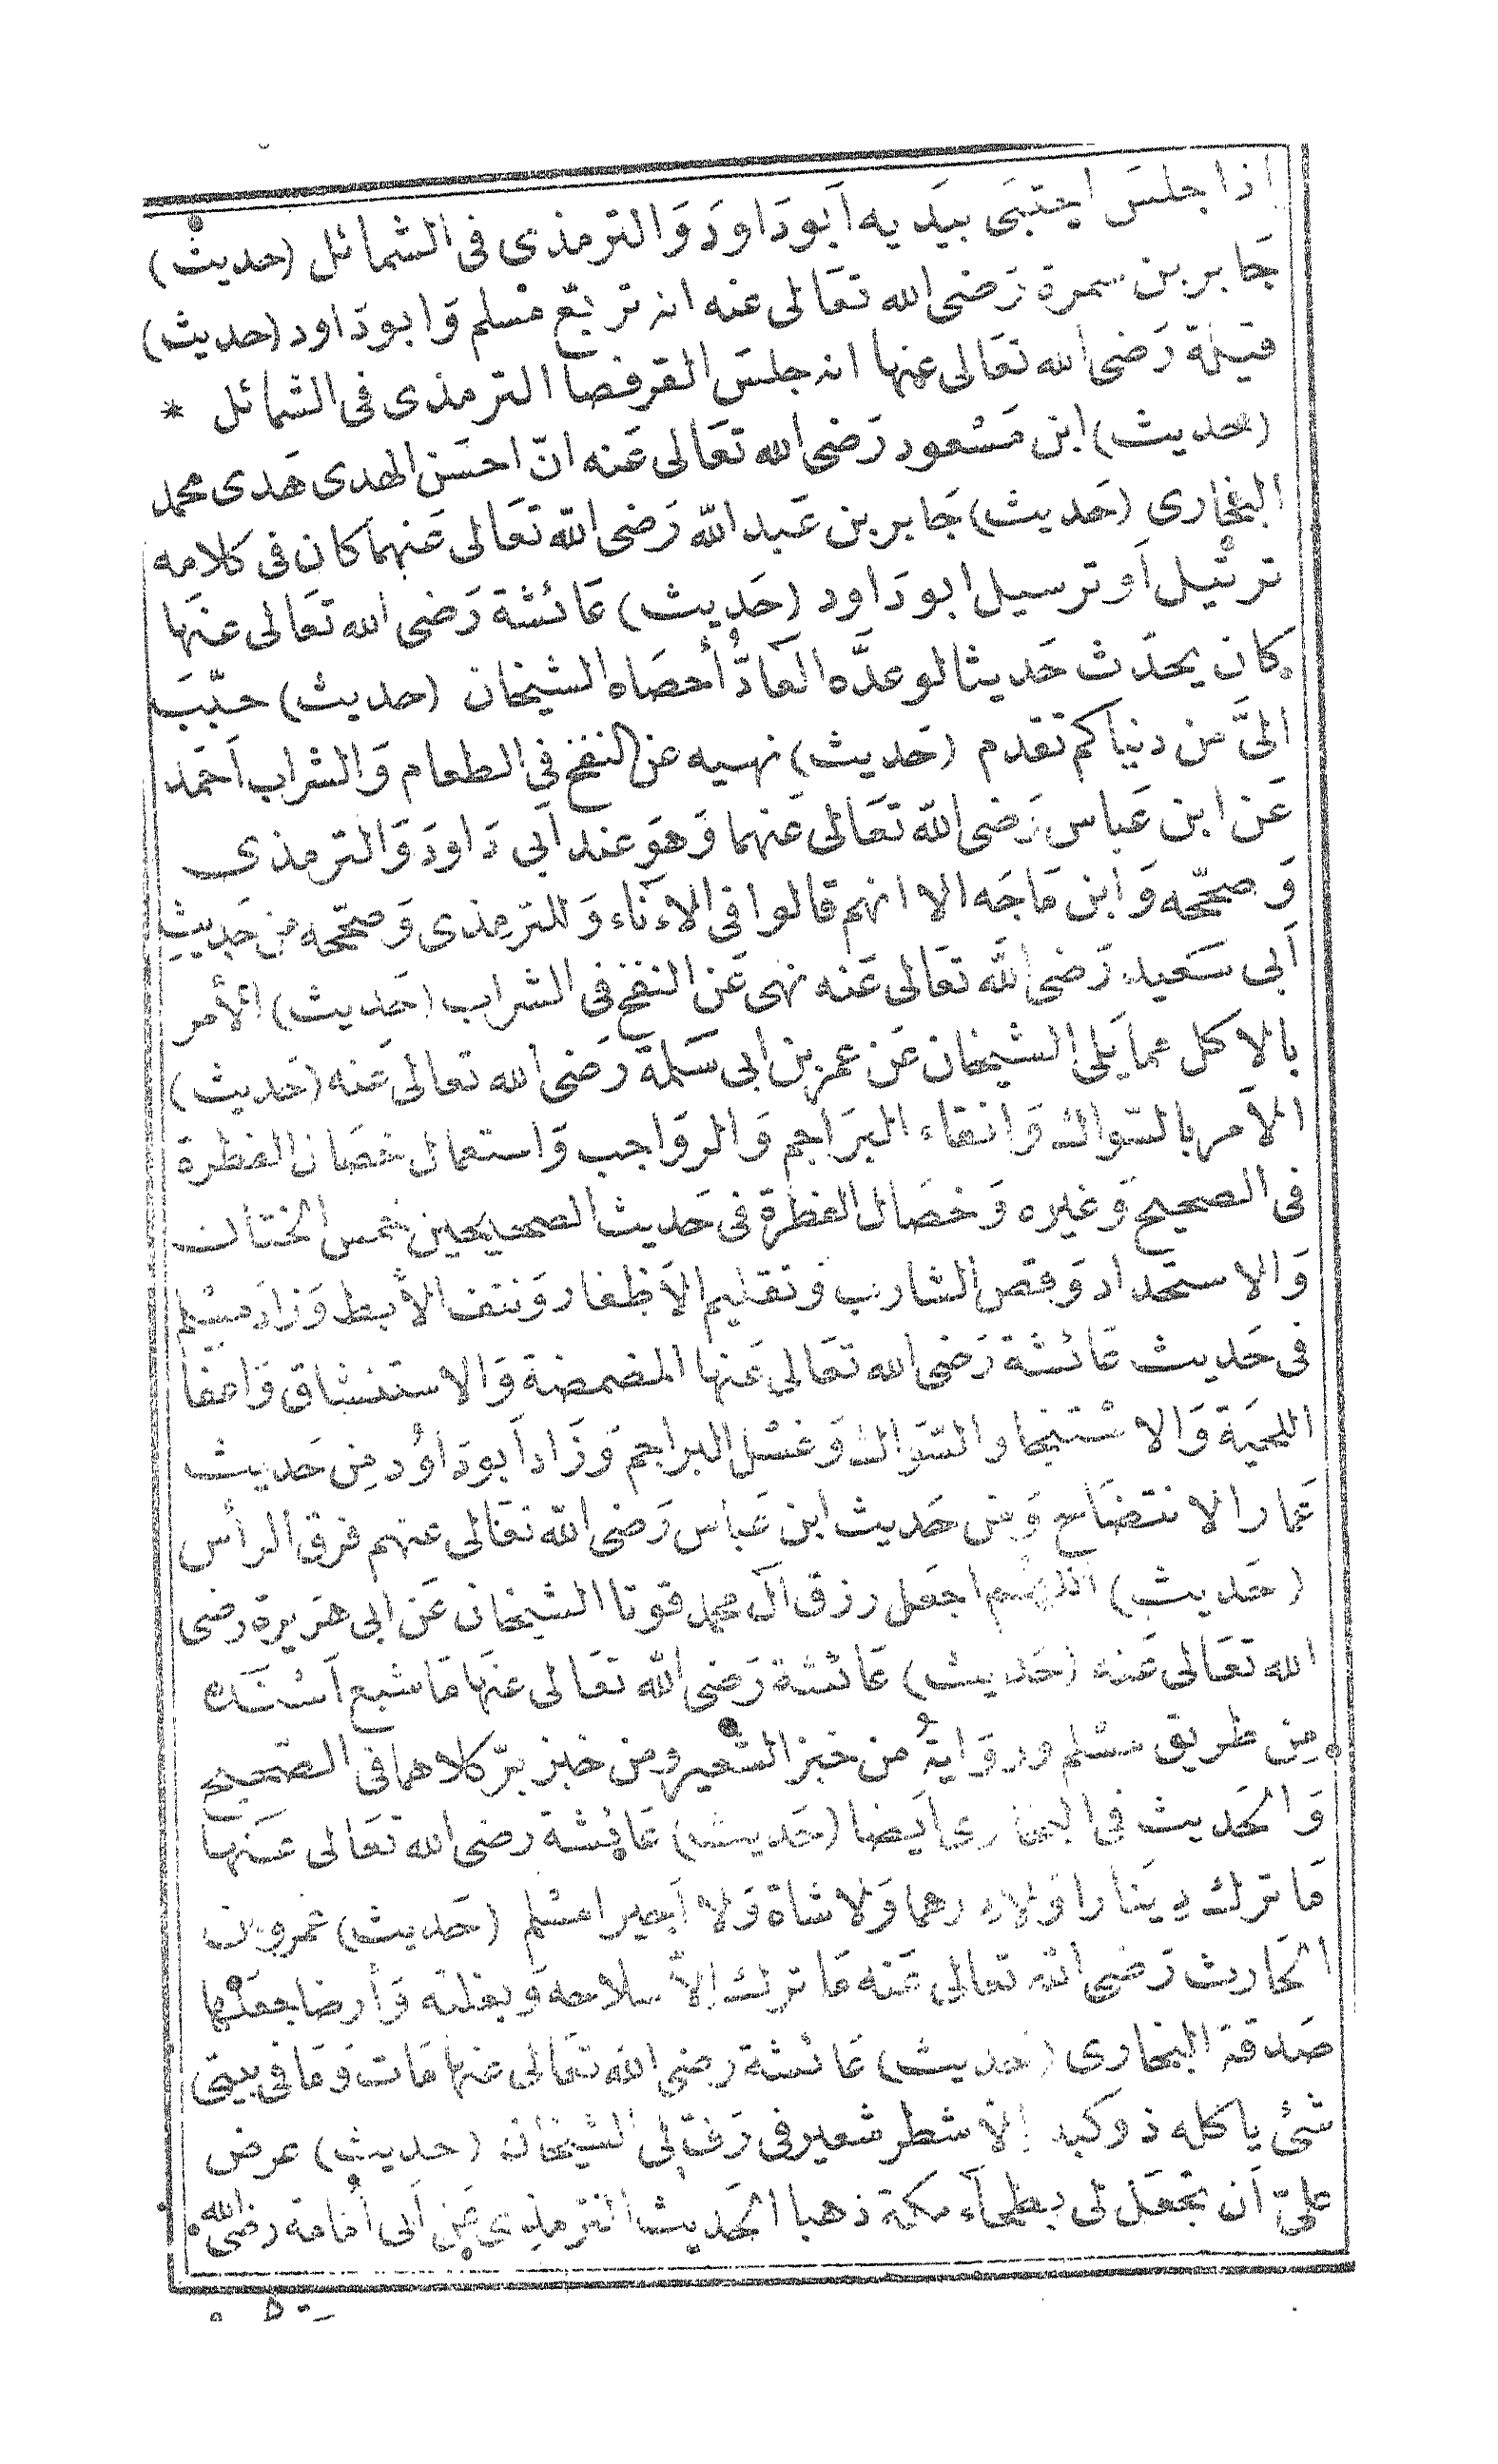 اذا جلسَ احتبَى بيَديه اَبودَاودَ وَالترمذى فى الشمائل (حديث)
جَابر بن سمرة رَضى الله تعَالى عنه انه تربّع مسْلم وَابودَاود (حديث)
قيلة رَضى الله تعَالى عنها انه جلسَ القرفصا الترمذى فى الشمائل *
(حديث) ابن مَسْعود رَضى الله تعَالى عَنه انّ احسَن الهدى هَدى محمد
البخارى (حَديث) جَابر بن عَبد الله رَضى الله تعَالى عَنهما كان فى كلامه
ترتيل اَو ترسيل ابودَاود (حَديث) عَائشة رَضى الله تعَالى عنهَا
كان يحدّث حَديثا لو عدَّه العَادُّ أحصَاه الشيخان (حديث) حبّبَ
الىَّ من دنياكم تقدم (حَديث) نهيه عن النفخ فى الطعام وَالشراب اَحمَد
عَن ابن عَباس رَضى الله تعَالى عَنهما وَهوَ عند اَبى دَاودَ وَالترمذى
وَصححّه وَابن مَاجَه الا انهم قالوا فى الاِنَاء وَللترمذى وَصحّحه مِن حَديثِ
اَبى سَعيد رَضى الله تعَالى عَنه نهى عَن النفخ فى الشراب (حَديث) الأمر
بالاكل مما يَلى الشيخان عَن عمر بن ابى سَلمة رَضى الله تعَالى عَنه (حَديث)
الاَمر بالسّواك وَانقاء البرَاجم وَالروَاجب وَاستعمال خصَال الفطرة
فى الصحيح وَغيره وَخصَال الفطرة فى حَديث الصحيحين خمس الختان
وَالاستحداد وَقص الشارب وَتقليم الاَظفار وَنتف الأبط وَزادَ مسْلم
فى حَديث عَائشة رَضى الله تعَالى عَنها المضمضة وَالاستنشاق وَاعفَا
اللحيَة وَالاسْتنجا والسّوَاك وَغسْل البراجم وَزَاد اَبودَاوُد مِن حَديث
عَمار الانتضَاح وَمن حَديث ابن عَباس رَضى الله تعَالى عنهم فرق الرأس
(حَديث) اللهُم اجعَل رزق آل محمد قوتا الشيخان عَن ابى هرَيرة رضى
الله تعَالى عَنه (حَديث) عَائشة رَضى الله تعَالى عنهَا مَا شبع
مِن طريق مسْلم وروَايةُ من خبز الشّعير ومن خبز برّ كلاهما فى الصّحيح
وَالحَديث فى البخارى اَيضا (حَديث) عَائشة رضى الله تعَالى عَنها
مَا ترك دِينَارا وَلا درهما وَلا شاة وَلا بَعيرا مسْلم (حَديث) عمرو بن
الحَارث رَضى الله تعالى عَنه مَا ترك اِلاّ سلاحه وَبغلته وَأرضا جعَلها
صَدقة البخارى (حديث) عَائشة رضى الله تعَالى عنها مَات وَمَا فى بيتى
شئ ياكله ذو كبد اِلاّ شطر شعير فى رَفّ لى الشيخان (حديث) عرض
علىّ اَن تجعَل لى بطحاَء مكة ذهبا الحَديث الترمذى عَن اَبى اُمَامة رضى الله